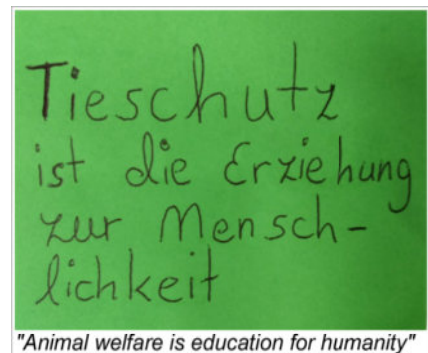 Tieschutz
ist die Erziehung
zur Mensch-
lichkeit
"Animal welfare is education for humanity"